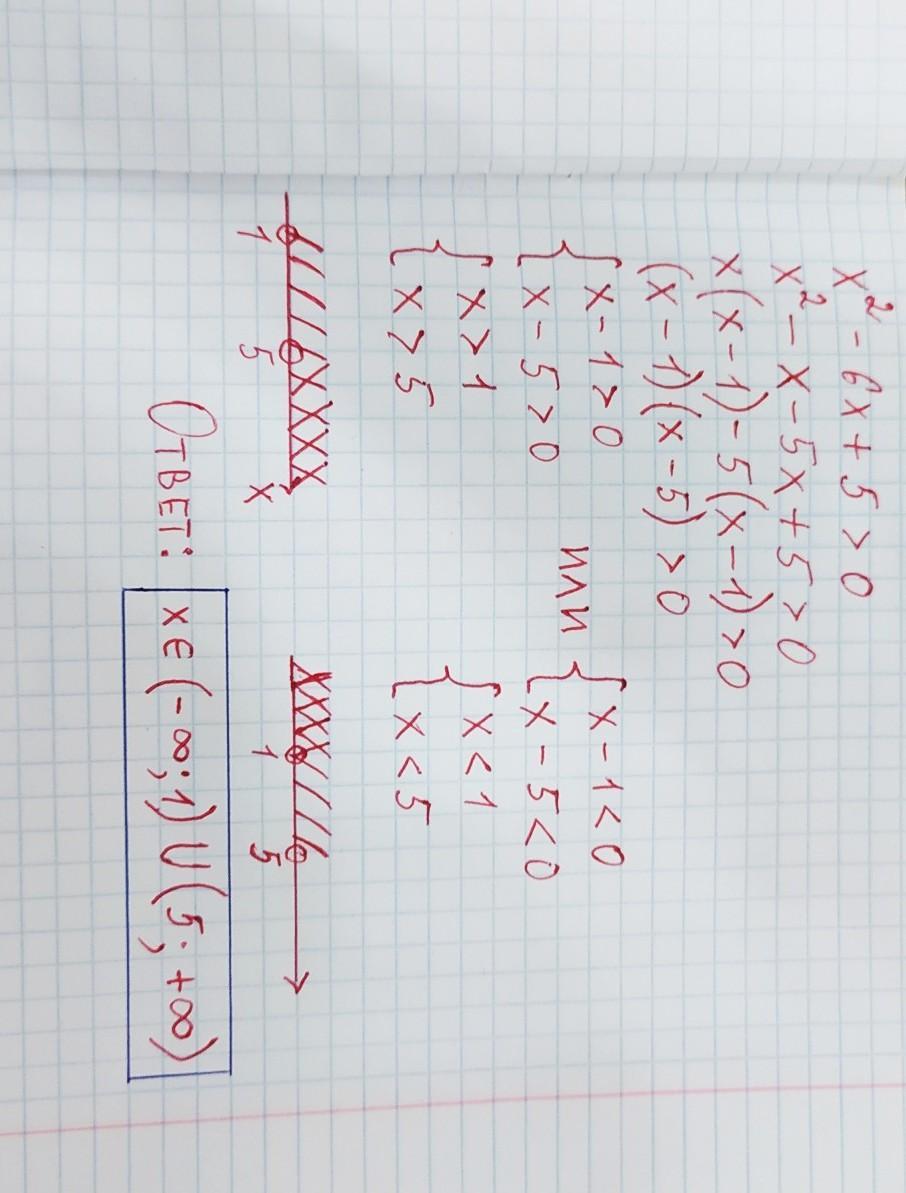 x² - 6x + 5 > 0
x² - x - 5x + 5 > 0
x(x-1) - 5(x-1) > 0
(x-1)(x-5) > 0
{ x-1>0 или { x-1<0
x-5>0 x-5<0
{ x>1 { x<1
x>5 x<5
1 5 x 1 5
Ответ: x∈(-∞;1)∪(5;+∞)